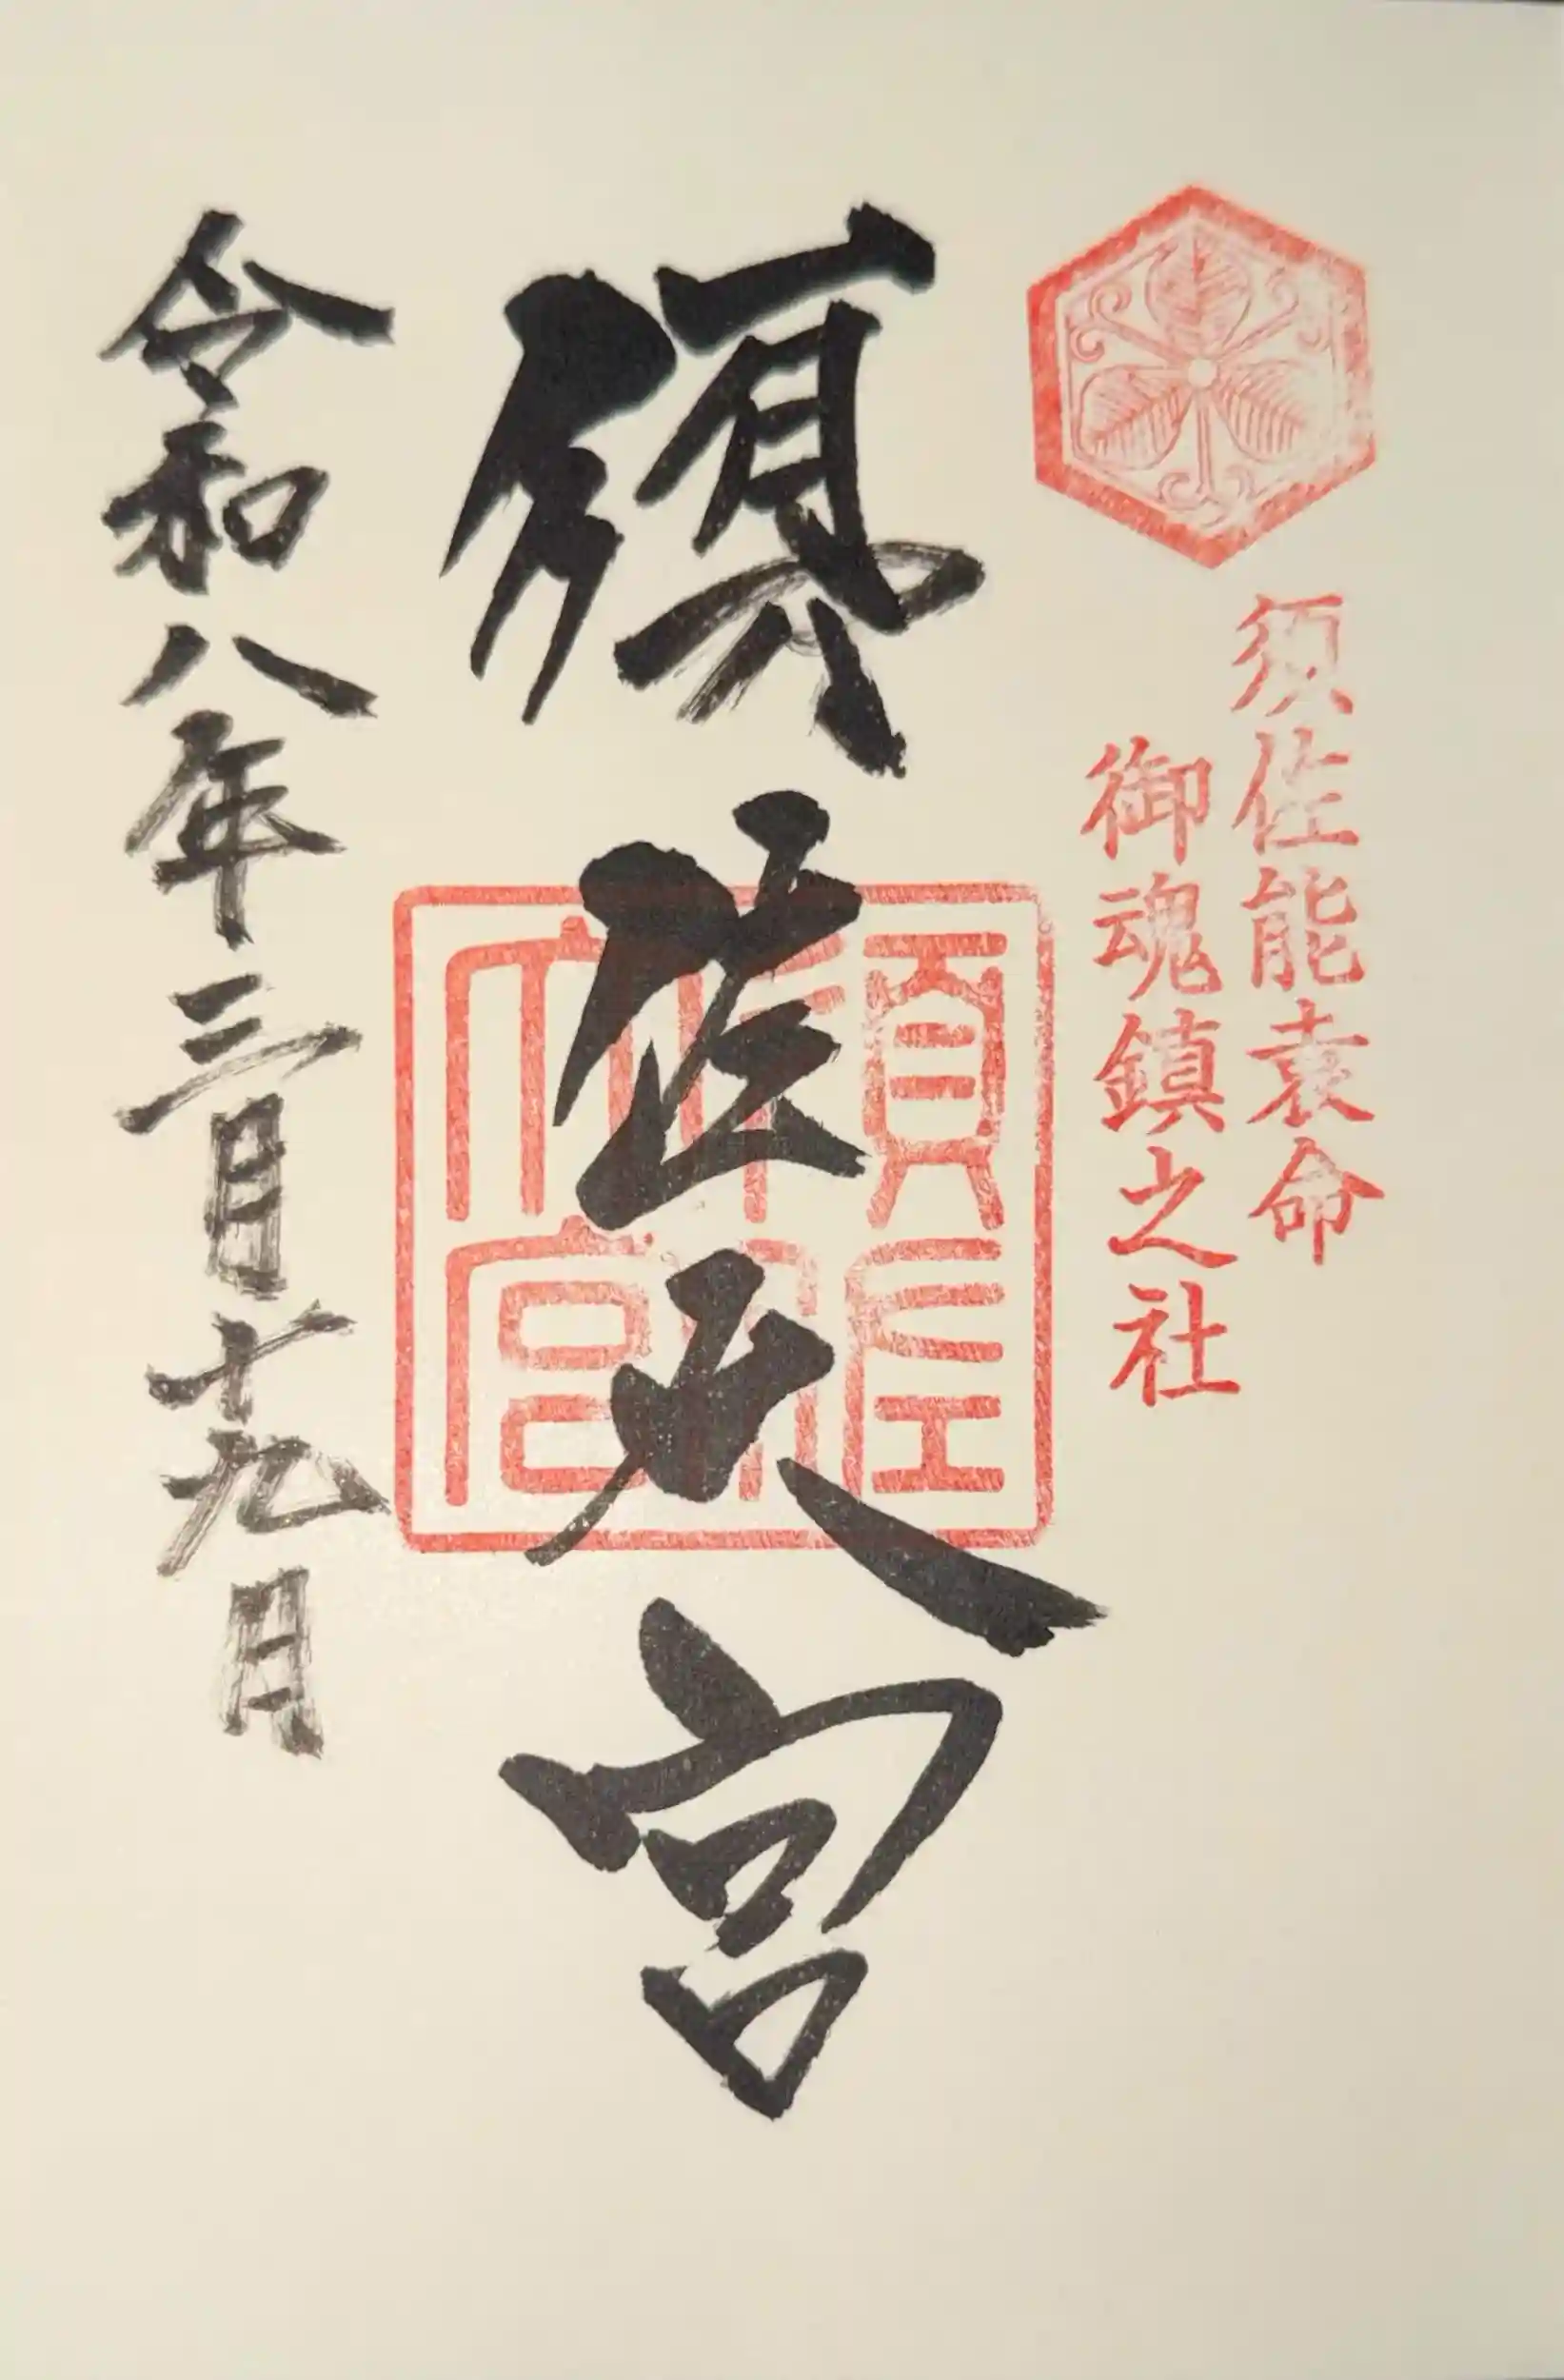 須佐能袁命
御魂鎮之社
須佐大宮
令和八年三月十九日